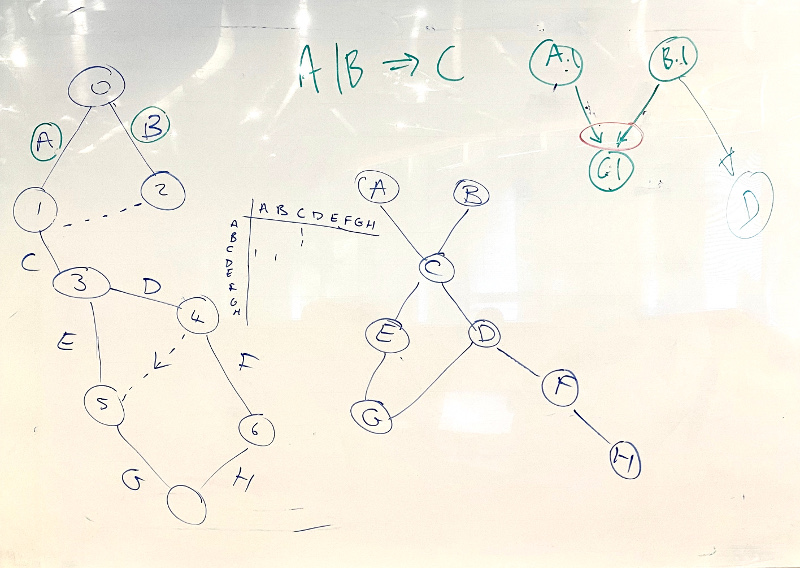 A|B ⇒ C
A.1
B.1
C.1
D
0
A
B
1
2
C
3
D
4
E
F
5
6
G
H
A B C D E F G H
A
B
C
D
E
F
G
H
A
B
C
E
D
G
F
H